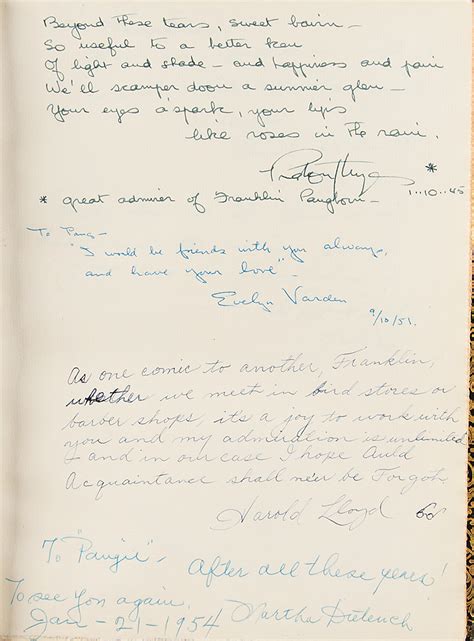 Beyond these tears, sweet bairn –
So useful to a better ken
Of light and shade – and happiness and pain
We'll scamper doon a summer glen –
Your eyes a'spark, your lips
like roses in the rain.
*
1..10..45
* great admirer of Franklin Pangborn –
To Pang –
"I would be friends with you always,
and have your love" –
Evelyn Varden
9/10/51.
As one comic to another, Franklin,
whether we meet in bird stores or
barber shops, it's a joy to work with
you and my admiration is unlimited
& and in our case I hope Auld
Acquaintance shall ne'er be Forgot.
Harold Lloyd
To "Pangie" – After all these years!
To see you again.
Jan – 21 – 1954